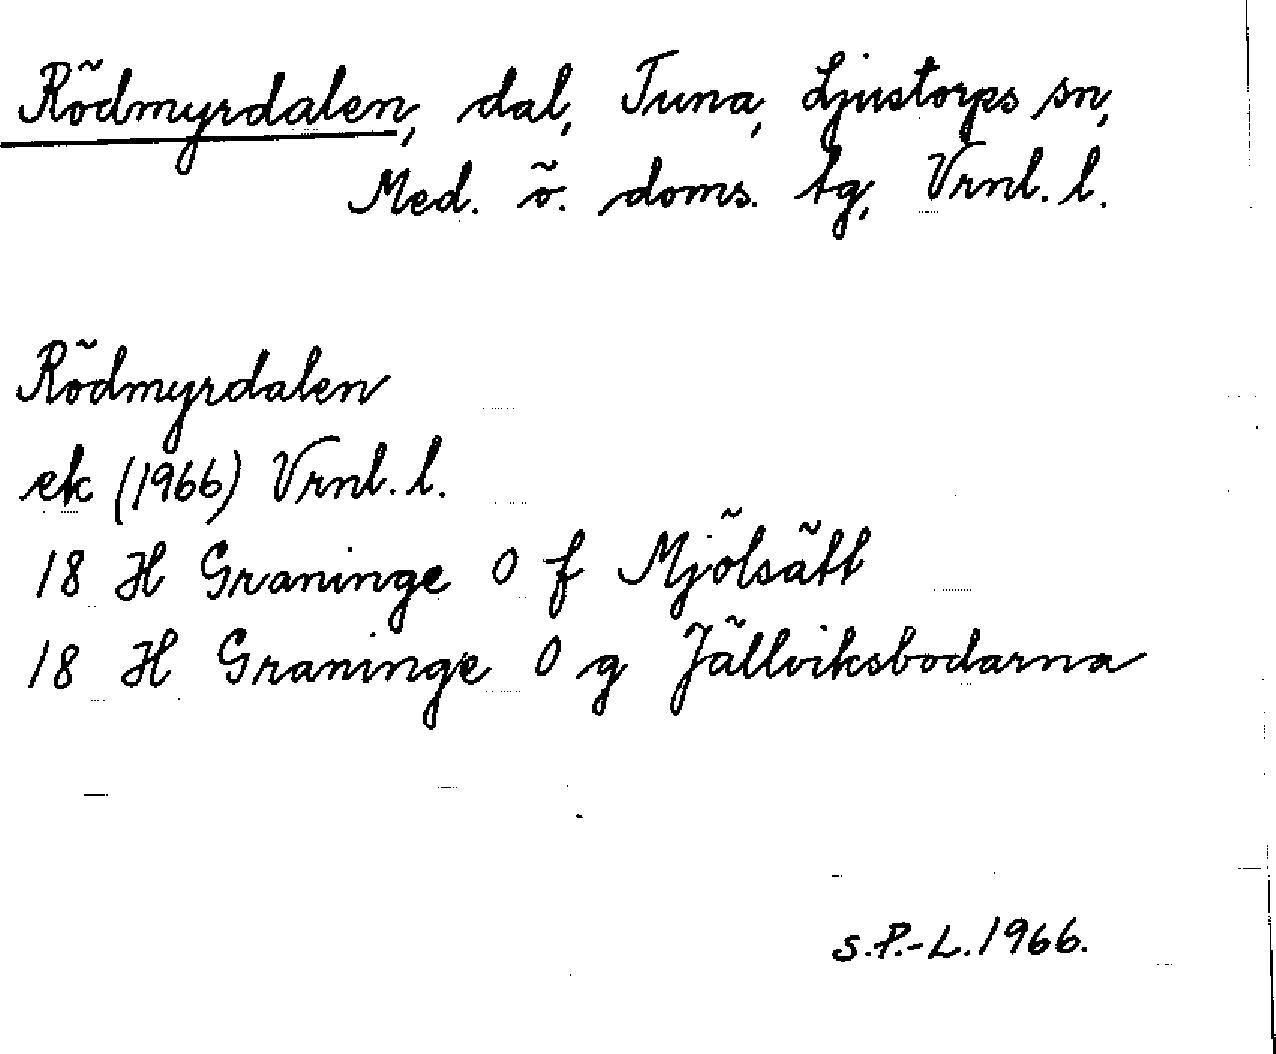 Rödmyrdalen, dal, Tuna, Ljustorps sn,
Med. ö. doms. tg, Vrnl. l.
Rödmyrdalen
ek (1966) Vrnl. l.
18 H Graninge 0 f Mjölsätt
18 H Graninge 0 g Jällviksbodarna
S.P.-L. 1966.